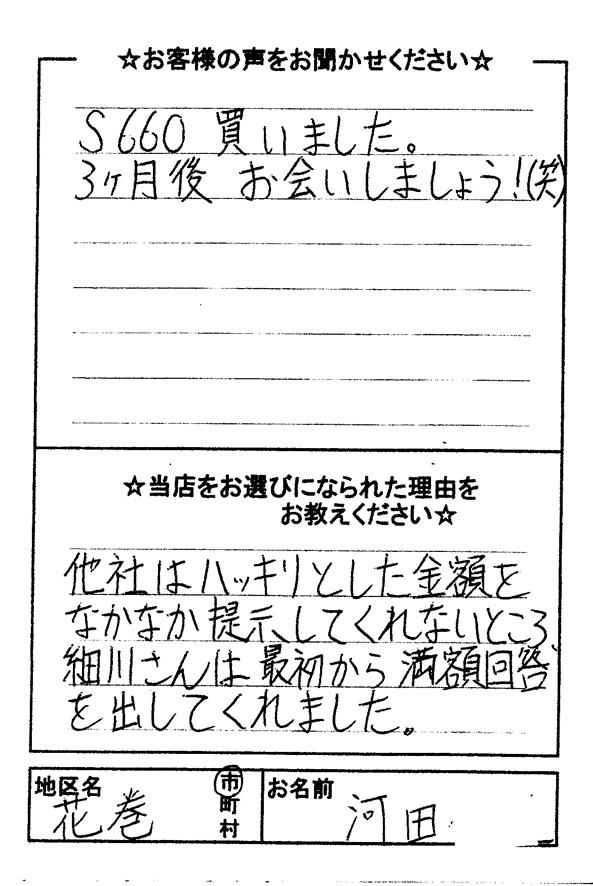 ☆お客様の声をお聞かせください☆
S660 買いました。
3ヶ月後 お会いしましょう!(笑)
☆当店をお選びになられた理由を
お教えください☆
他社はハッキリとした金額を
なかなか提示してくれないところ
細川さんは最初から満額回答
を出してくれました。
地区名 花巻 市
町
村
お名前 河田